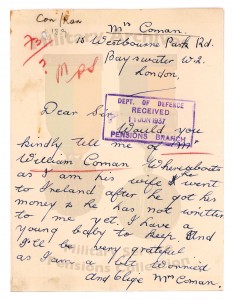 Con/Ran
Mrs Coman.
16 Westbourne Park Rd.
Bayswater W.2.
London,
Dear Sir,
DEPT. OF DEFENCE
RECEIVED
11 JUN 1937
PENSIONS BRANCH
Would you
kindly tell me of Mr
William Coman Whereabouts
as I am his wife I went
to Ireland after he got his
money & he has not written
to me yet. I have a
young baby to keep. And
I'll be very grateful
as I am a bit worried
and Oblige Mrs Coman.